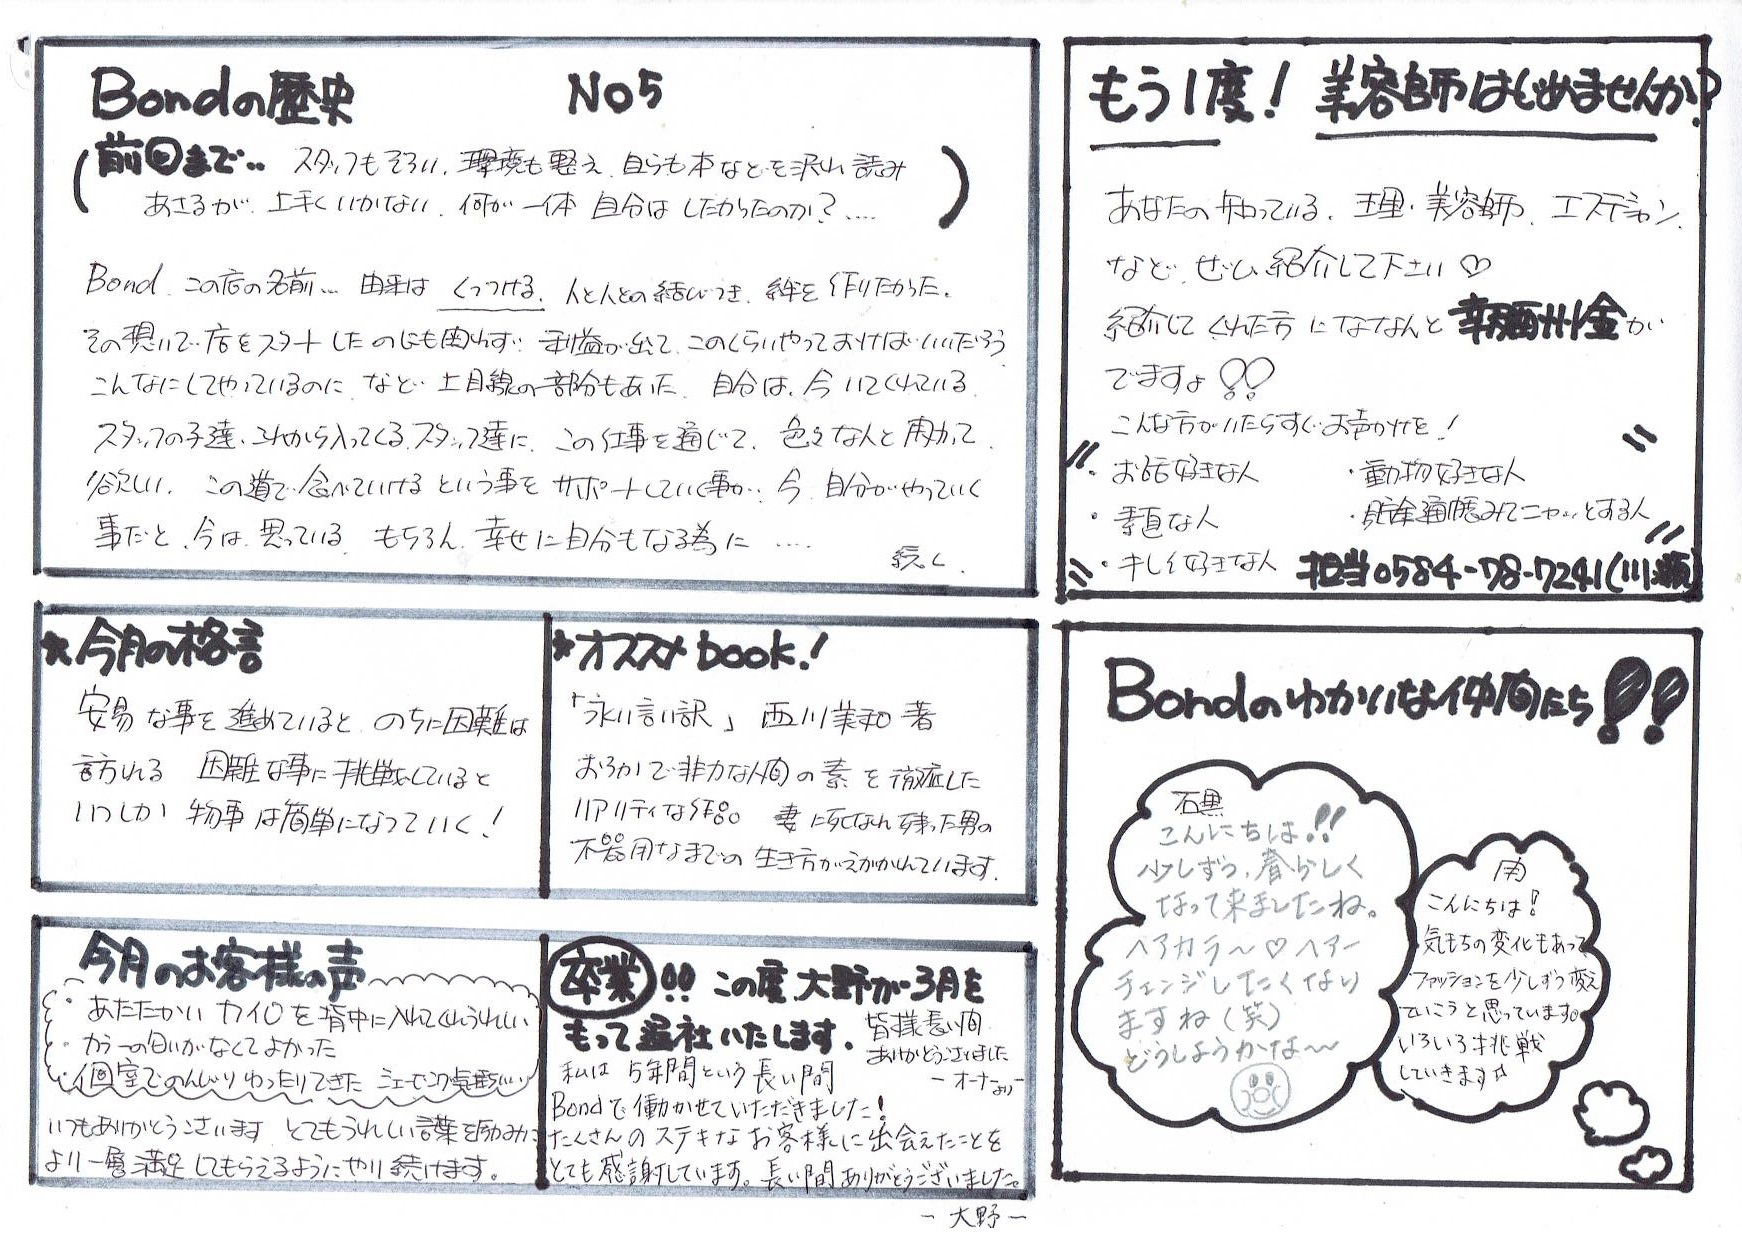 Bondの歴史 No5
(前回まで‥ スタッフもそろい、環境も整え、自らも本などを沢山読み
あさるが、上手くいかない、何が一体自分はしたかったのか?‥‥)
Bond、この店の名前… 由来はくっつける、人と人との結びつき、絆を作りたかった。
その想いで店をスタートしたのにも関わらず、利益が出て、このくらいやっておけばいいだろう
こんなにしてやっているのに、など、上目線の部分もあった、自分は、今いてくれている
スタッフの子達、これから入ってくるスタッフ達に、この仕事を通じて、色々な人と関わって
欲しい、この道で食べていけるという事をサポートしていく事が、今、自分がやっていく
事だと、今は、思っている、もちろん、幸せに自分もなる為に ‥‥
続く、
★今月の格言
安易な事を進めていると、のちに困難は
訪れる 困難な事に挑戦していると
いつしか物事は簡単になっていく!
★オススメbook!
「永い言い訳」 西川美和著
おろかで非力な人間の素を徹底した
リアリティな作品 妻に死なれ残った男の
不器用なまでの生き方がえがかれています。
今月のお客様の声
・あたたかいカイロを背中に入れてくれうれしい
・カラーの匂いがなくてよかった
・個室でのんびりゆったりできた シェービング気持いい
いつもありがとうございます とてもうれしい言葉を励みに
より一層満足してもらえるようにやり続けます。
卒業!! この度、大野が3月を
もって退社いたします。
皆様長い間
ありがとうございました
－オーナーより－
私は5年間という長い間
Bondで働かせていただきました!
たくさんのステキなお客様に出会えたことを
とても感謝しています。長い間ありがとうございました。
－大野－
もう1度! 美容師はじめませんか?
あなたの知っている、理・美容師、エステシャン、
など、ぜひ紹介して下さい♡
紹介してくれた方になななんと報酬金が
でますよ!!
こんな方がいたらすぐお声かけを!
・お話好きな人 ・動物好きな人
・素直な人 ・貯金通帳みてニヤッとする人
・キレイ好きな人 担当0584-78-7241(川瀬)
Bondのゆかいな仲間たち!!
石黒
こんにちは!!
少しずつ、春らしく
なって来ましたね。
ヘアカラ～♡ヘアー
チェンジしたくなり
ますね(笑)
どうしようかな～～
南
こんにちは!
気もちの変化もあって
ファッションを少しずつ変え
ていこうと思っています。
いろいろ挑戦
していきます☆